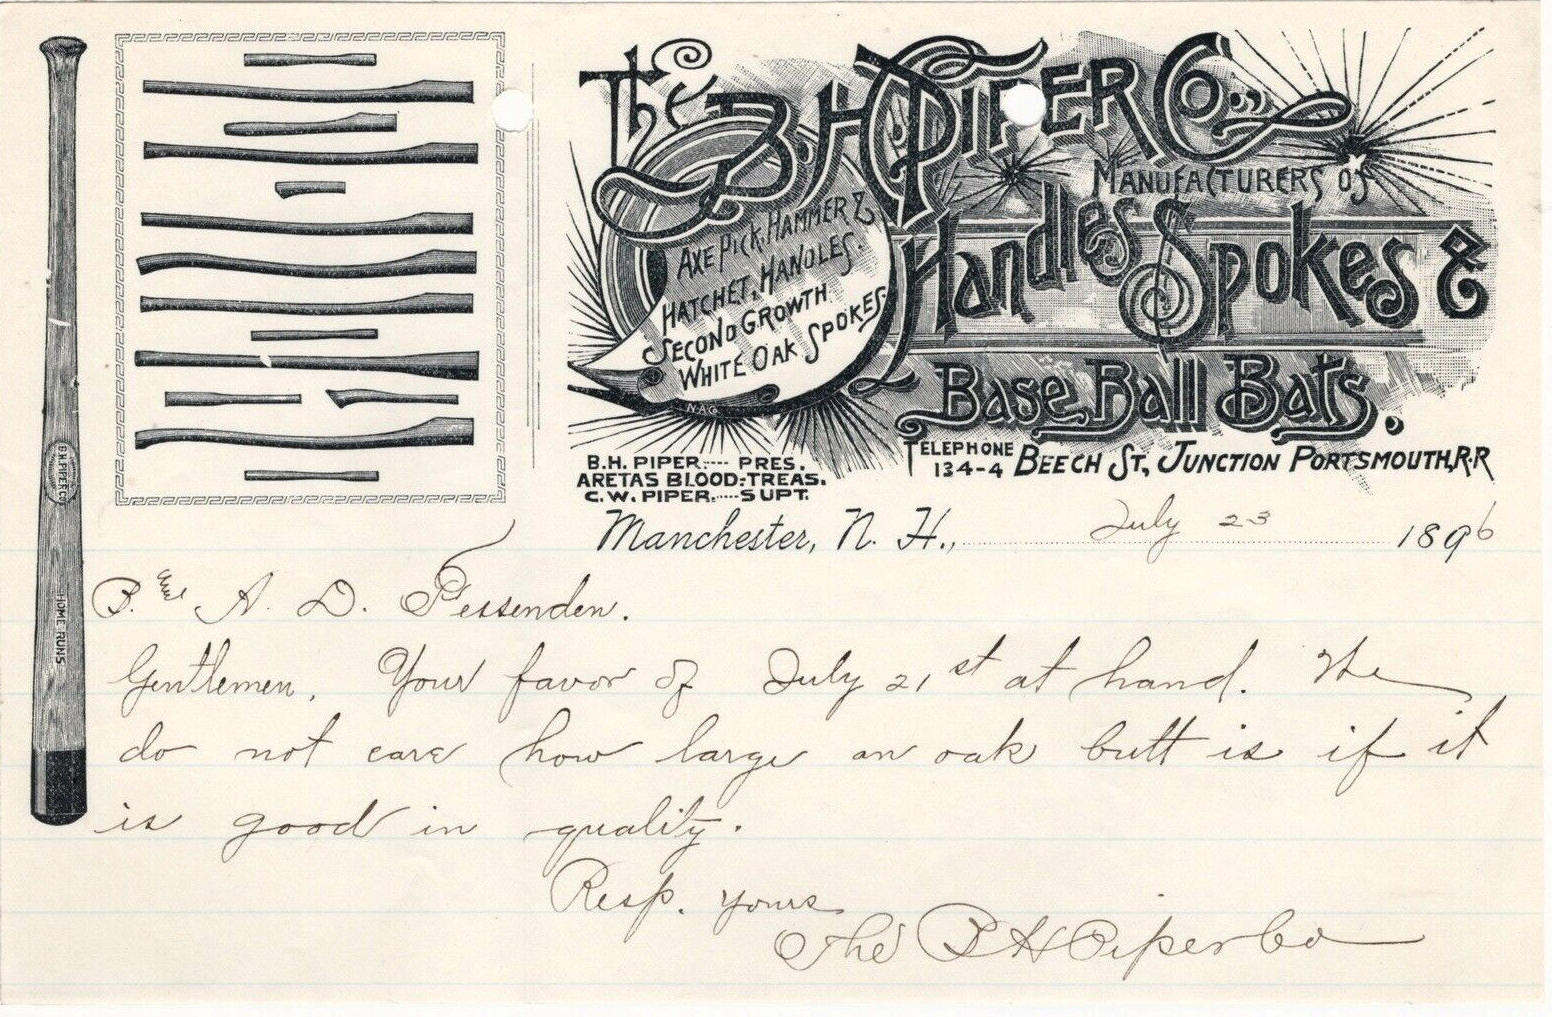 The B.H. Piper Co.,
Manufacturers of
Handles Spokes &
Base Ball Bats.
Axe Pick, Hammer &
Hatchet, Handles.
Second Growth
White Oak Spokes.
N.A.G.
B.H. PIPER.---- PRES.
ARETAS BLOOD-TREAS.
C.W. PIPER.----SUPT.
TELEPHONE
134-4 BEECH ST., JUNCTION PORTSMOUTH, R.R
B.H. PIPER CO
HOME RUNS
Manchester, N. H., July 23 1896
B. & A. D. Fessenden.
Gentlemen. Your favor of July 21st at hand. We
do not care how large an oak butt is if it
is good in quality.
Resp. yours
The B H Piper Co